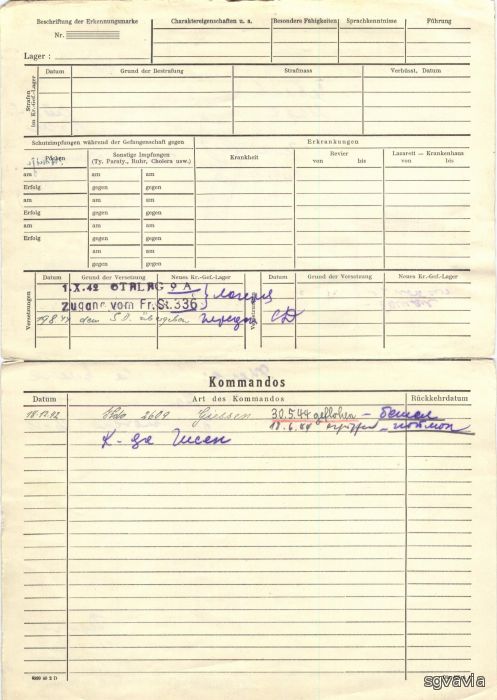 Beschriftung der Erkennungsmarke
Nr.
Lager :
Charaktereigenschaften u. a.
Besondere Fähigkeiten
Sprachkenntnisse
Führung
Strafen im Kr.-Gef.-Lager
Datum
Grund der Bestrafung
Strafmass
Verbüsst, Datum
Schutzimpfungen während der Gefangenschaft gegen
Erkrankungen
Pocken
Sonstige Impfungen
(Ty. Paraty., Ruhr, Cholera usw.)
Krankheit
Revier
von bis
Lazarett — Krankenhaus
von bis
am am am
Erfolg gegen gegen
am am am
Erfolg gegen gegen
am am am
Erfolg gegen gegen
am am
gegen gegen
Versetzungen
Datum Grund der Versetzung Neues Kr.-Gef.-Lager Datum Grund der Versetzung Neues Kr.-Gef.-Lager
1.X.42 STALAG 9 A
Zugang vom Fr. St. 336
dem S.D. übergeben передан СД
Kommandos
Datum Art des Kommandos Rückkehrdatum
18.12.42 Kdo 2609 Giessen 30.5.44 geflohen – бежал
18.6.44 – пойман
К-да Гисен
sgvavia